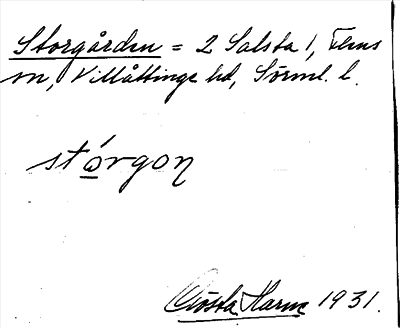 Storgården = 2 Salsta 1, Flens
sn, Villåttinge hd, Sörml. l.
stórgon
Gösta Harne 1931.